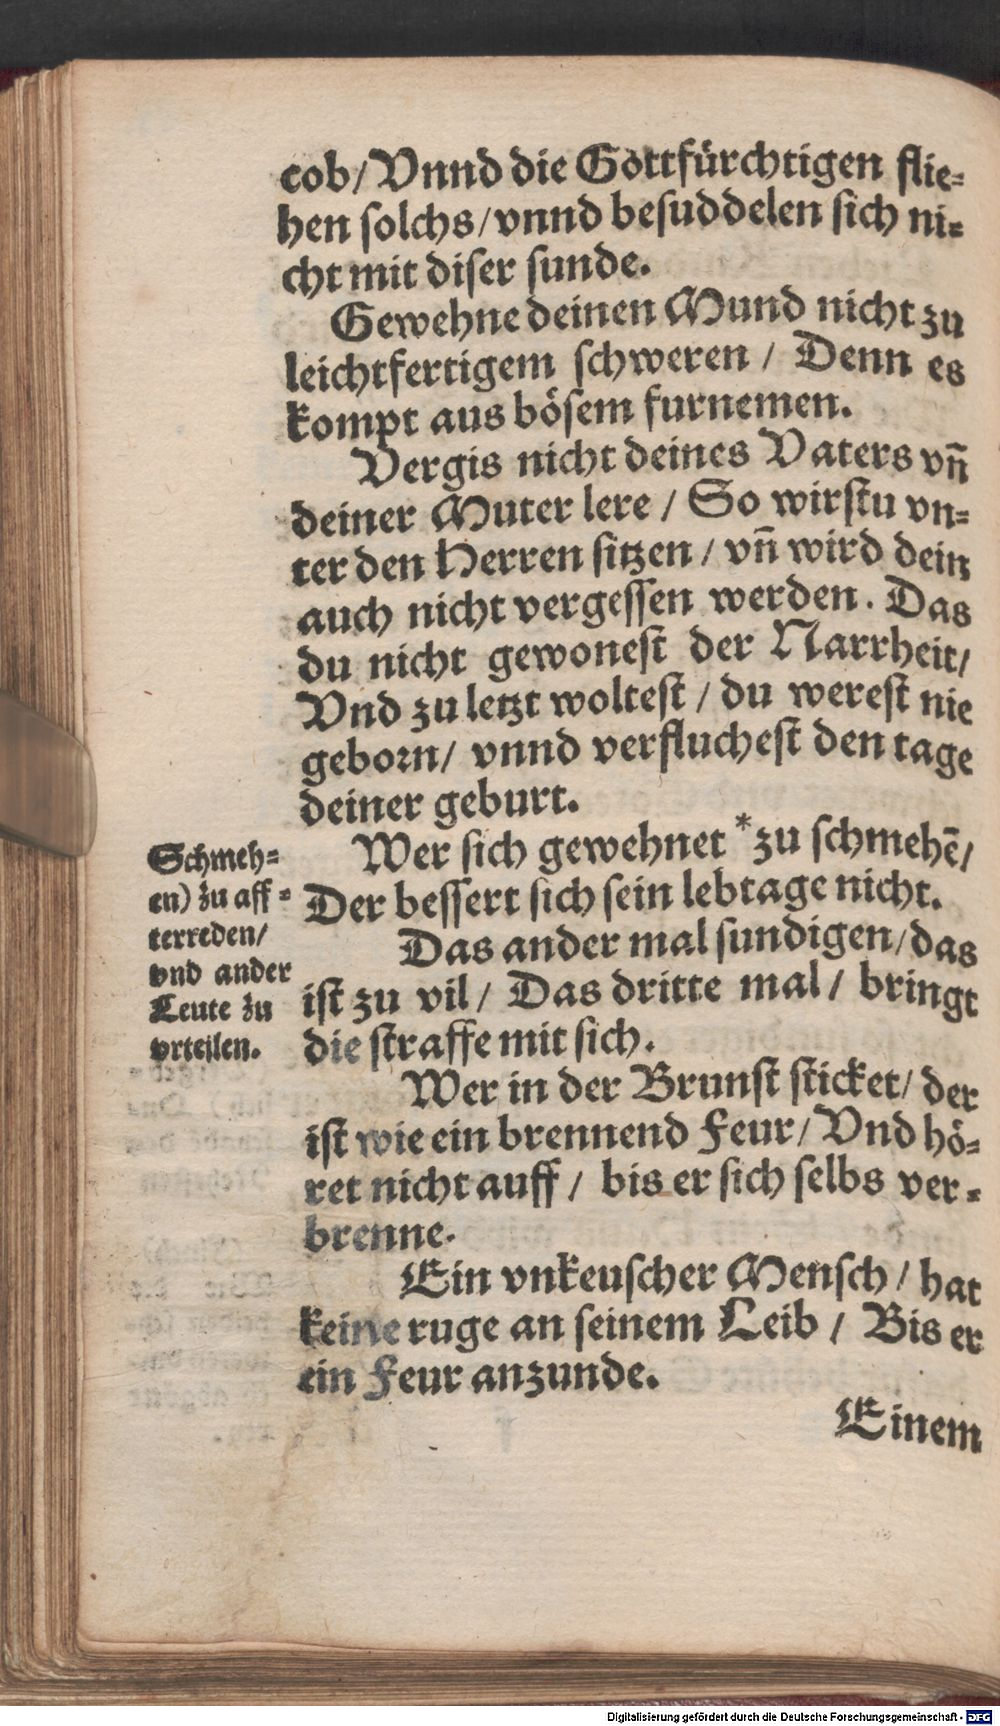 cob/ Vnnd die Gottfürchtigen flie-
hen solchs/ vnnd besuddelen sich ni-
cht mit diser sunde.
Gewehne deinen Mund nicht zu
leichtfertigem schweren / Denn es
kompt aus bösem furnemen.
Vergis nicht deines Vaters vn̄
deiner Muter lere / So wirstu vn-
ter den Herren sitzen / vn̄ wird dein
auch nicht vergessen werden. Das
du nicht gewonest der Narrheit/
Vnd zu letzt woltest / du werest nie
geborn/ vnnd verfluchest den tage
deiner geburt.
Wer sich gewehnet *zu schmehē/
Der bessert sich sein lebtage nicht.
Das ander mal sundigen/ das
ist zu vil / Das dritte mal / bringt
die straffe mit sich.
Wer in der Brunst sticket/ der
ist wie ein brennend Feur/ Vnd hö-
ret nicht auff / bis er sich selbs ver-
brenne.
Ein vnkeuscher Mensch / hat
keine ruge an seinem Leib / Bis er
ein Feur anzunde.
Einem
Schmeh-
en) zu aff-
terreden/
vnd ander
Leute zu
vrteilen.
Digitalisierung gefördert durch die Deutsche Forschungsgemeinschaft - DFG